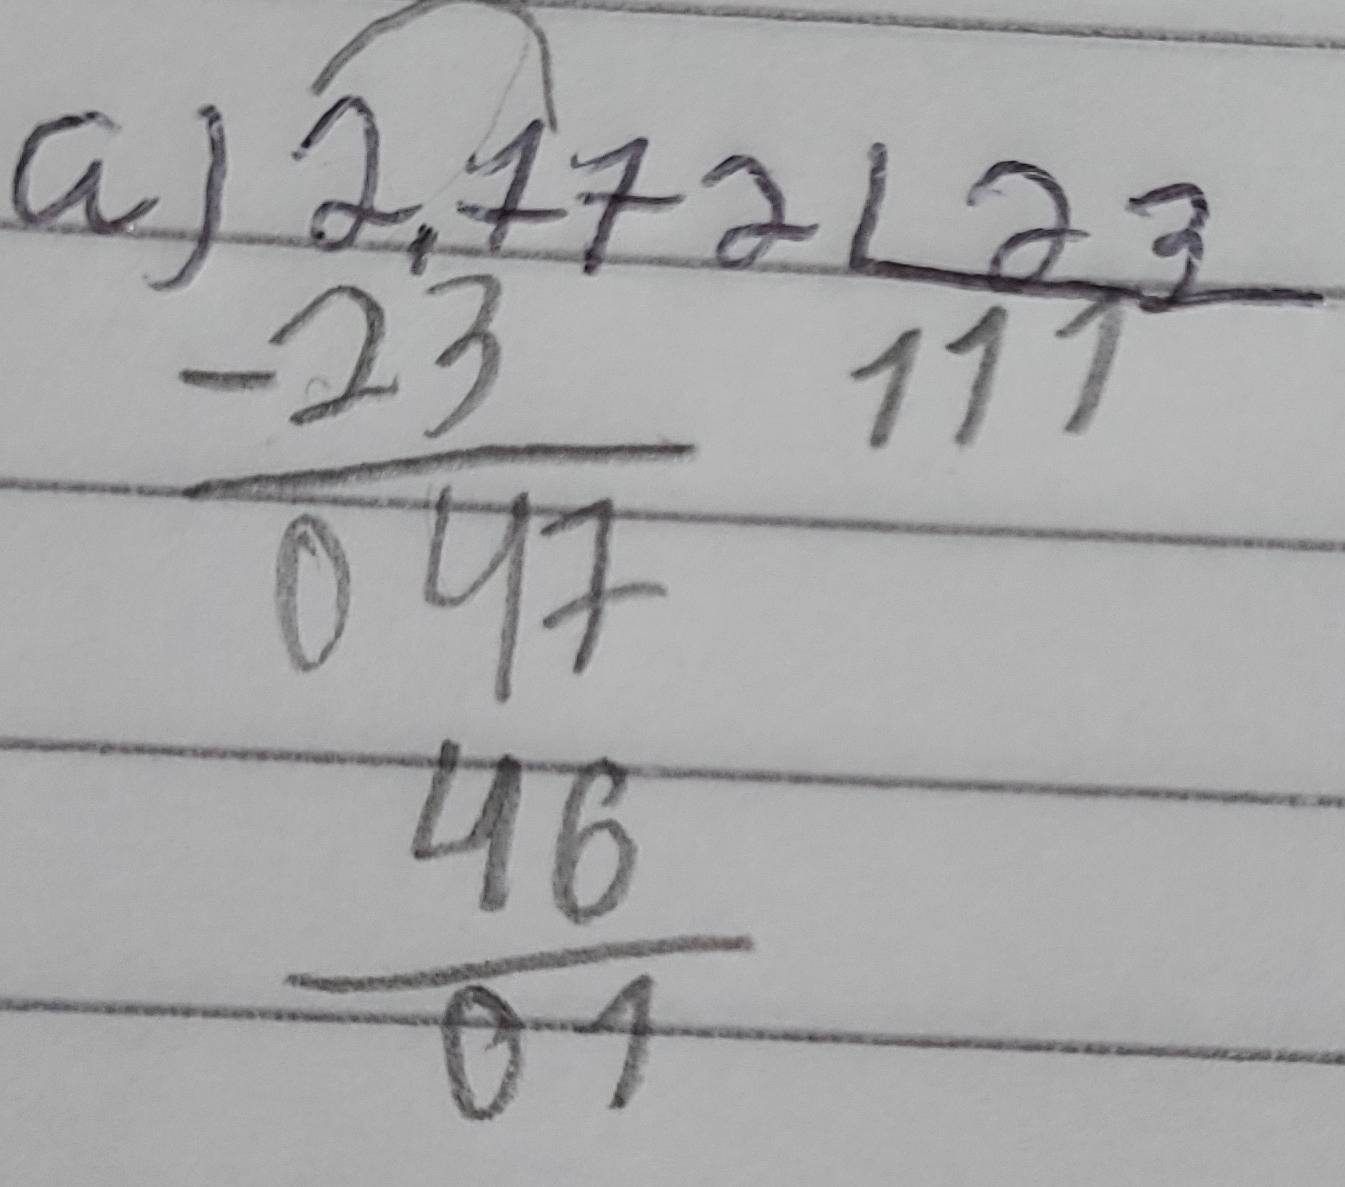 a) 2.772 23
-23 111
047
46
01